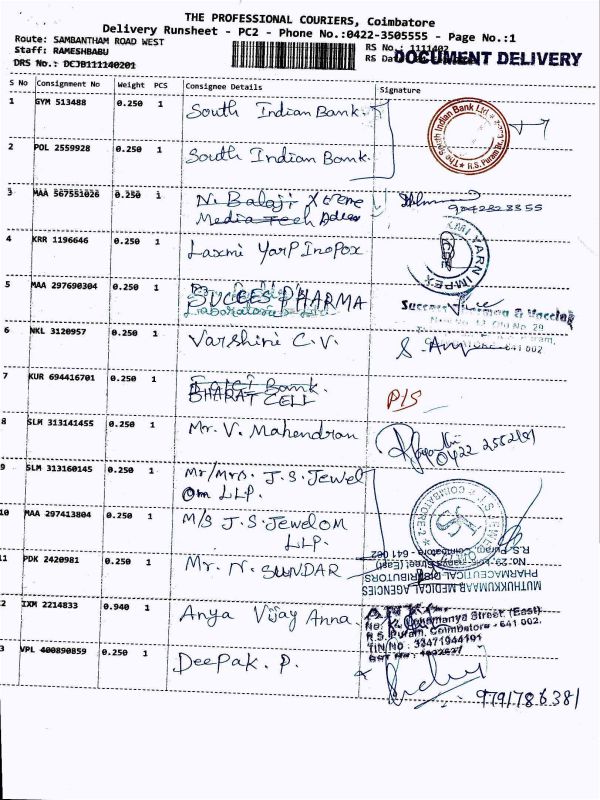 THE PROFESSIONAL COURIERS, Coimbatore
Delivery Runsheet - PC2 - Phone No.:0422-3505555 - Page No.:1
Route: SAMBANTHAM ROAD WEST
RS No.: 1111402
Staff: RAMESHBABU
RS Da
DOCUMENT DELIVERY
DRS No.: DCJB111140201
S No Consignment No Weight PCS Consignee Details Signature
1 GYM 513488 0.250 1 South Indian Bank
The South Indian Bank Ltd
R.S. Puram Br.
2 POL 2559928 0.250 1 South Indian Bank.
3 MAA 567551026 0.250 1 N. Balaji Xtreme
Media Tech
9042823355
4 KRR 1196646 0.250 1 Laxmi Yarp Inopox
YARN IMPEX
5 MAA 297690304 0.250 1 SUCCES PHARMA
Success Pharmaa & Vaccine
No. 29
641 002
6 NKL 3120957 0.250 1 Varshini C.V.
7 KUR 694416701 0.250 1 BHARAT CELL
8 SLM 313141455 0.250 1 Mr. V. Mahendran
0422
9 SLM 313160145 0.250 1 Mr/Mrs. J.S. Jewel
Om LLP.
COIMBATORE-2
JS
10 MAA 297413804 0.250 1 M/S J.S. Jewel OM
LLP.
11 PDK 2420981 0.250 1 Mr. N. SUNDAR
MUTHUKKUMAAR MEDICAL AGENCIES
PHARMACEUTICAL DISTRIBUTORS
R.S. Puram, Coimbatore - 641 002
2 IXM 2214833 0.940 1 Anya Vijay Anna.
Street (East)
R.S. Puram, Coimbatore - 641 002.
TIN No : 33471944191
3 VPL 400890859 0.250 1 Deepak. P.
9791786381